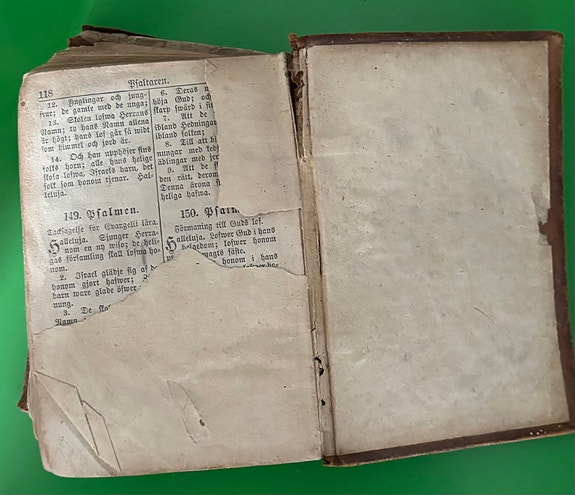 118 Psaltaren.
12. Ynglingar och jung-
frur; de gamle med de unga;
13. Skolen lofwa Herrans
Namn; ty hans Namn allena
är högt; hans lof går så widt
som himmel och jord är.
14. Och han upphöjer sins
folks horn; alle hans helige
skola lofwa, Israels barn, det
folk som honom tjenar. Hal-
leluja.
149. Psalmen.
Tacksägelse för Evangelii lära.
Halleluja. Sjunger Herra-
nom en ny wiso; de heli-
gas församling skall lofwa ho-
nom.
2. Israel glädje sig af
honom gjort hafwer;
barn ware glade öfwer
nung.
3. De
Namn
6. Deras
höja Gud; och
skarp swärd i
7. Att de
ibland Hedningar
ibland folken;
8. Till att
nungar med
ädlingar med
9. Att de
den rätt, derom
Denna ärona
helige hafwa.
150.
Förmaning till Guds lof.
Halleluja. Lofwer Gud i hans
helgedom; lofwer honom
magts fäste.
honom i hans